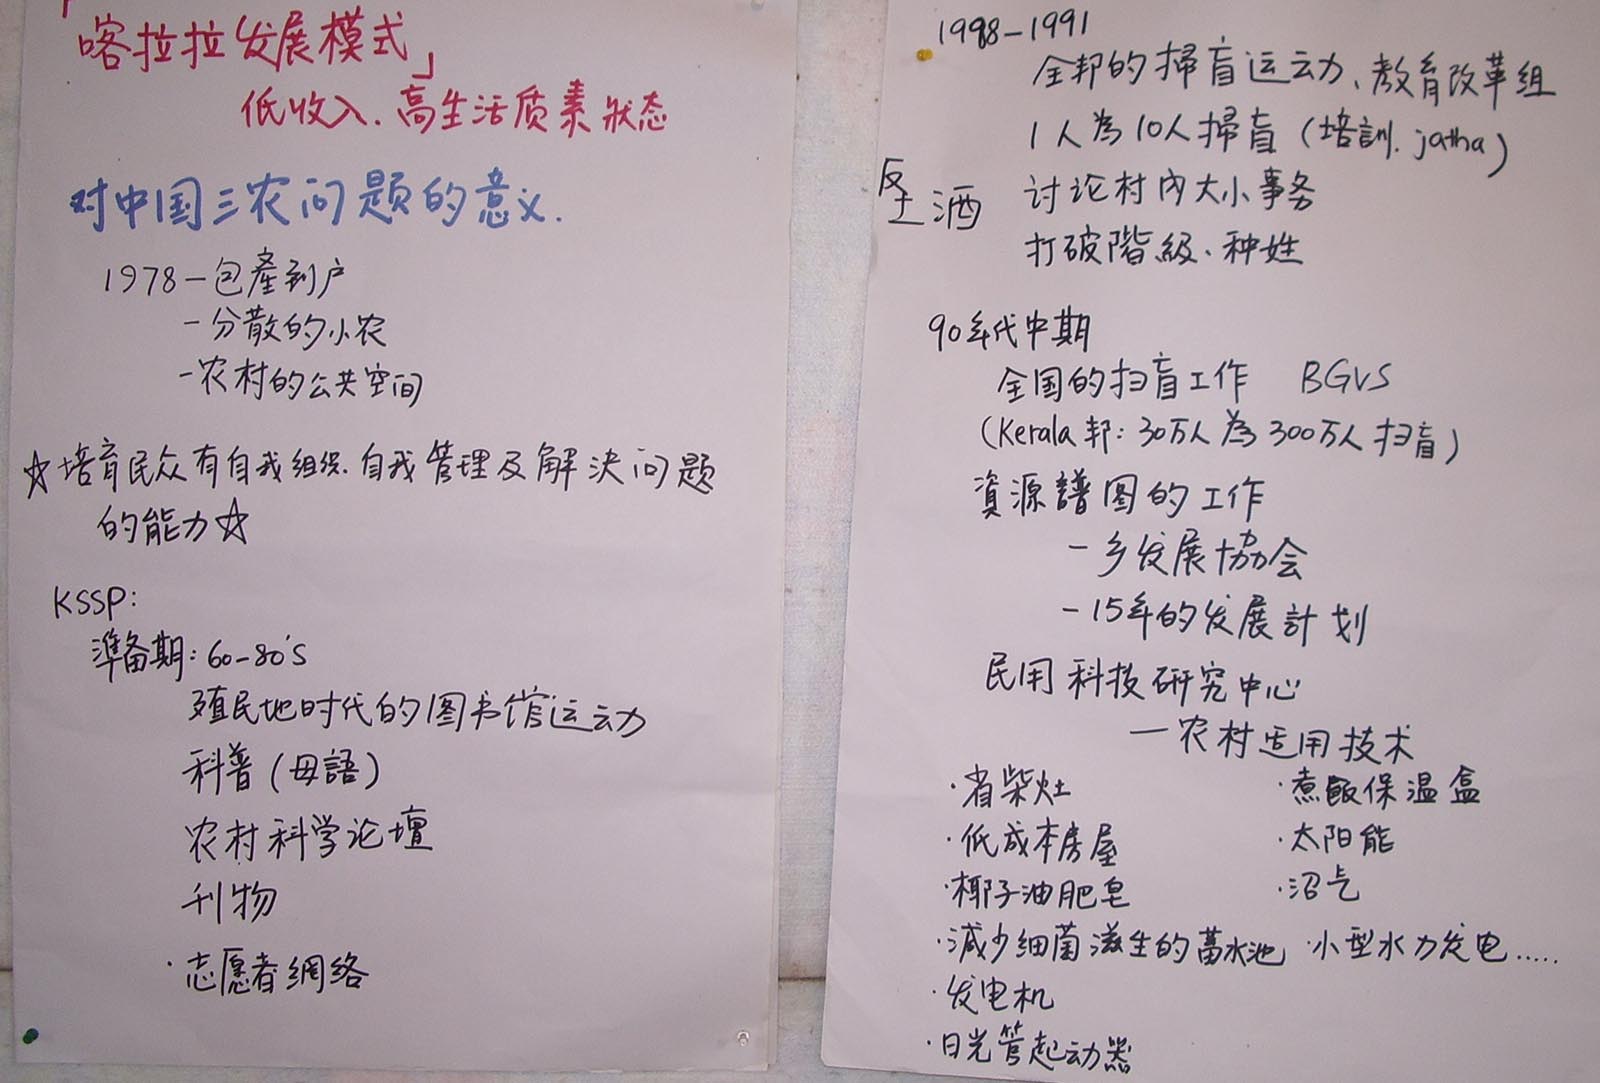 「喀拉拉发展模式」
低收入、高生活质素状态
对中国三农问题的意义.
1978－包產到户
－分散的小农
－农村的公共空间
☆培育民众有自我组织、自我管理及解决问题
的能力☆
KSSP:
準备期: 60-80's
殖民地时代的图书馆运动
科普(母語)
农村科学论壇
刊物
·志愿者網络
1998-1991
全邦的掃盲运动、教育改革组
1人為10人掃盲(培訓、jatha)
讨论村内大小事务
酒
打破階級、种姓
90年代中期
全国的扫盲工作 BGVS
(Kerala邦: 30万人為300万人扫盲)
資源譜图的工作
－乡发展協会
－15年的发展計划
民用科技研究中心
－农村适用技术
·省柴灶 ·煮飯保温盒
·低成本房屋 ·太阳能
·椰子油肥皂 ·沼气
·減少细菌滋生的蓄水池 ·小型水力发电.....
·发电机
·日光管起动器